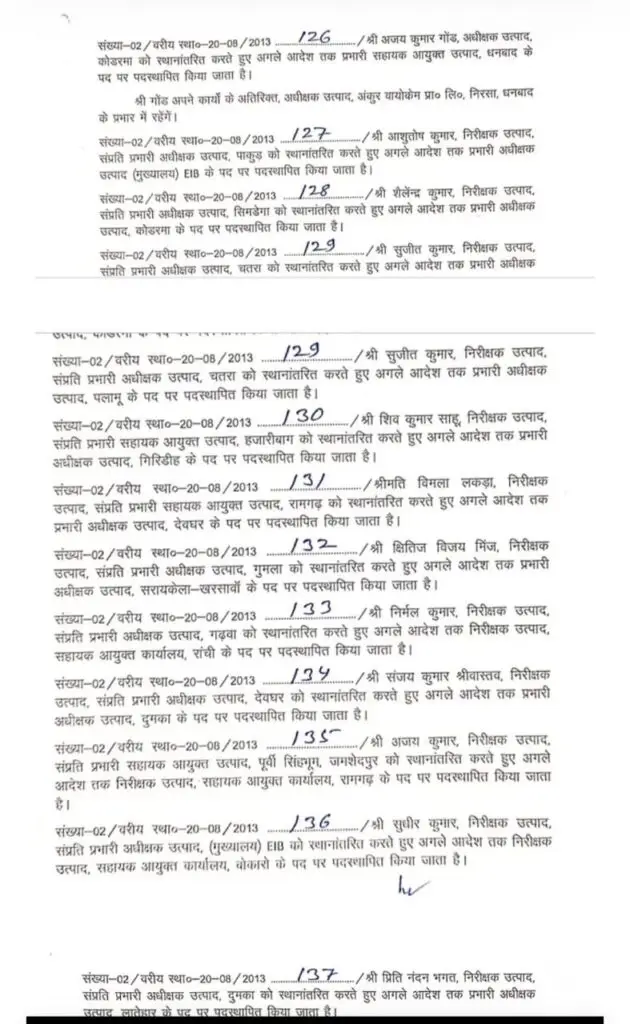 संख्या-02/वरीय स्था०-20-08/2013 ......126....../श्री अजय कुमार गोंड, अधीक्षक उत्पाद,
कोडरमा को स्थानांतरित करते हुए अगले आदेश तक प्रभारी सहायक आयुक्त उत्पाद, धनबाद के
पद पर पदस्थापित किया जाता है।
श्री गोंड अपने कार्यो के अतिरिक्त, अधीक्षक उत्पाद, अंकुर वायोकेम प्रा० लि०, निरसा, धनबाद
के प्रभार में रहेंगें।
संख्या-02/वरीय स्था०-20-08/2013 ......127....../श्री आशुतोष कुमार, निरीक्षक उत्पाद,
संप्रति प्रभारी अधीक्षक उत्पाद, पाकुड़ को स्थानांतरित करते हुए अगले आदेश तक प्रभारी अधीक्षक
उत्पाद (मुख्यालय) EIB के पद पर पदस्थापित किया जाता है।
संख्या-02/वरीय स्था०-20-08/2013 ......128....../श्री शैलेन्द्र कुमार, निरीक्षक उत्पाद,
संप्रति प्रभारी अधीक्षक उत्पाद, सिमडेगा को स्थानांतरित करते हुए अगले आदेश तक प्रभारी अधीक्षक
उत्पाद, कोडरमा के पद पर पदस्थापित किया जाता है।
संख्या-02/वरीय स्था०-20-08/2013 ......129....../श्री सुजीत कुमार, निरीक्षक उत्पाद,
संप्रति प्रभारी अधीक्षक उत्पाद, चतरा को स्थानांतरित करते हुए अगले आदेश तक प्रभारी अधीक्षक
उत्पाद, कोडरमा के पद पर
संख्या-02/वरीय स्था०-20-08/2013 ......129....../श्री सुजीत कुमार, निरीक्षक उत्पाद,
संप्रति प्रभारी अधीक्षक उत्पाद, चतरा को स्थानांतरित करते हुए अगले आदेश तक प्रभारी अधीक्षक
उत्पाद, पलामू के पद पर पदस्थापित किया जाता है।
संख्या-02/वरीय स्था०-20-08/2013 ......130....../श्री शिव कुमार साहू, निरीक्षक उत्पाद,
संप्रति प्रभारी सहायक आयुक्त उत्पाद, हजारीबाग को स्थानांतरित करते हुए अगले आदेश तक प्रभारी
अधीक्षक उत्पाद, गिरिडीह के पद पर पदस्थापित किया जाता है।
संख्या-02/वरीय स्था०-20-08/2013 ......131....../श्रीमति विमला लकड़ा, निरीक्षक
उत्पाद, संप्रति प्रभारी सहायक आयुक्त उत्पाद, रामगढ़ को स्थानांतरित करते हुए अगले आदेश तक
प्रभारी अधीक्षक उत्पाद, देवघर के पद पर पदस्थापित किया जाता है।
संख्या-02/वरीय स्था०-20-08/2013 ......132....../श्री क्षितिज विजय मिंज, निरीक्षक
उत्पाद, संप्रति प्रभारी अधीक्षक उत्पाद, गुमला को स्थानांतरित करते हुए अगले आदेश तक प्रभारी
अधीक्षक उत्पाद, सरायकेला-खरसावाँ के पद पर पदस्थापित किया जाता है।
संख्या-02/वरीय स्था०-20-08/2013 ......133....../श्री निर्मल कुमार, निरीक्षक उत्पाद,
संप्रति प्रभारी अधीक्षक उत्पाद, गढ़वा को स्थानांतरित करते हुए अगले आदेश तक निरीक्षक उत्पाद,
सहायक आयुक्त कार्यालय, रांची के पद पर पदस्थापित किया जाता है।
संख्या-02/वरीय स्था०-20-08/2013 ......134....../श्री संजय कुमार श्रीवास्तव, निरीक्षक
उत्पाद, संप्रति प्रभारी अधीक्षक उत्पाद, देवघर को स्थानांतरित करते हुए अगले आदेश तक प्रभारी
अधीक्षक उत्पाद, दुमका के पद पर पदस्थापित किया जाता है।
संख्या-02/वरीय स्था०-20-08/2013 ......135....../श्री अजय कुमार, निरीक्षक उत्पाद,
संप्रति प्रभारी सहायक आयुक्त उत्पाद, पूर्वी सिंहभूम, जमशेदपुर को स्थानांतरित करते हुए अगले
आदेश तक निरीक्षक उत्पाद, सहायक आयुक्त कार्यालय, रामगढ़ के पद पर पदस्थापित किया जाता
है।
संख्या-02/वरीय स्था०-20-08/2013 ......136....../श्री सुधीर कुमार, निरीक्षक उत्पाद,
संप्रति प्रभारी अधीक्षक उत्पाद, (मुख्यालय) EIB को स्थानांतरित करते हुए अगले आदेश तक निरीक्षक
उत्पाद, सहायक आयुक्त कार्यालय, बोकारो के पद पर पदस्थापित किया जाता है।
संख्या-02/वरीय स्था०-20-08/2013 ......137....../श्री प्रिति नंदन भगत, निरीक्षक उत्पाद,
संप्रति प्रभारी अधीक्षक उत्पाद, दुमका को स्थानांतरित करते हुए अगले आदेश तक प्रभारी अधीक्षक
उत्पाद, लातेहार के पद पर पदस्थापित किया जाता है।